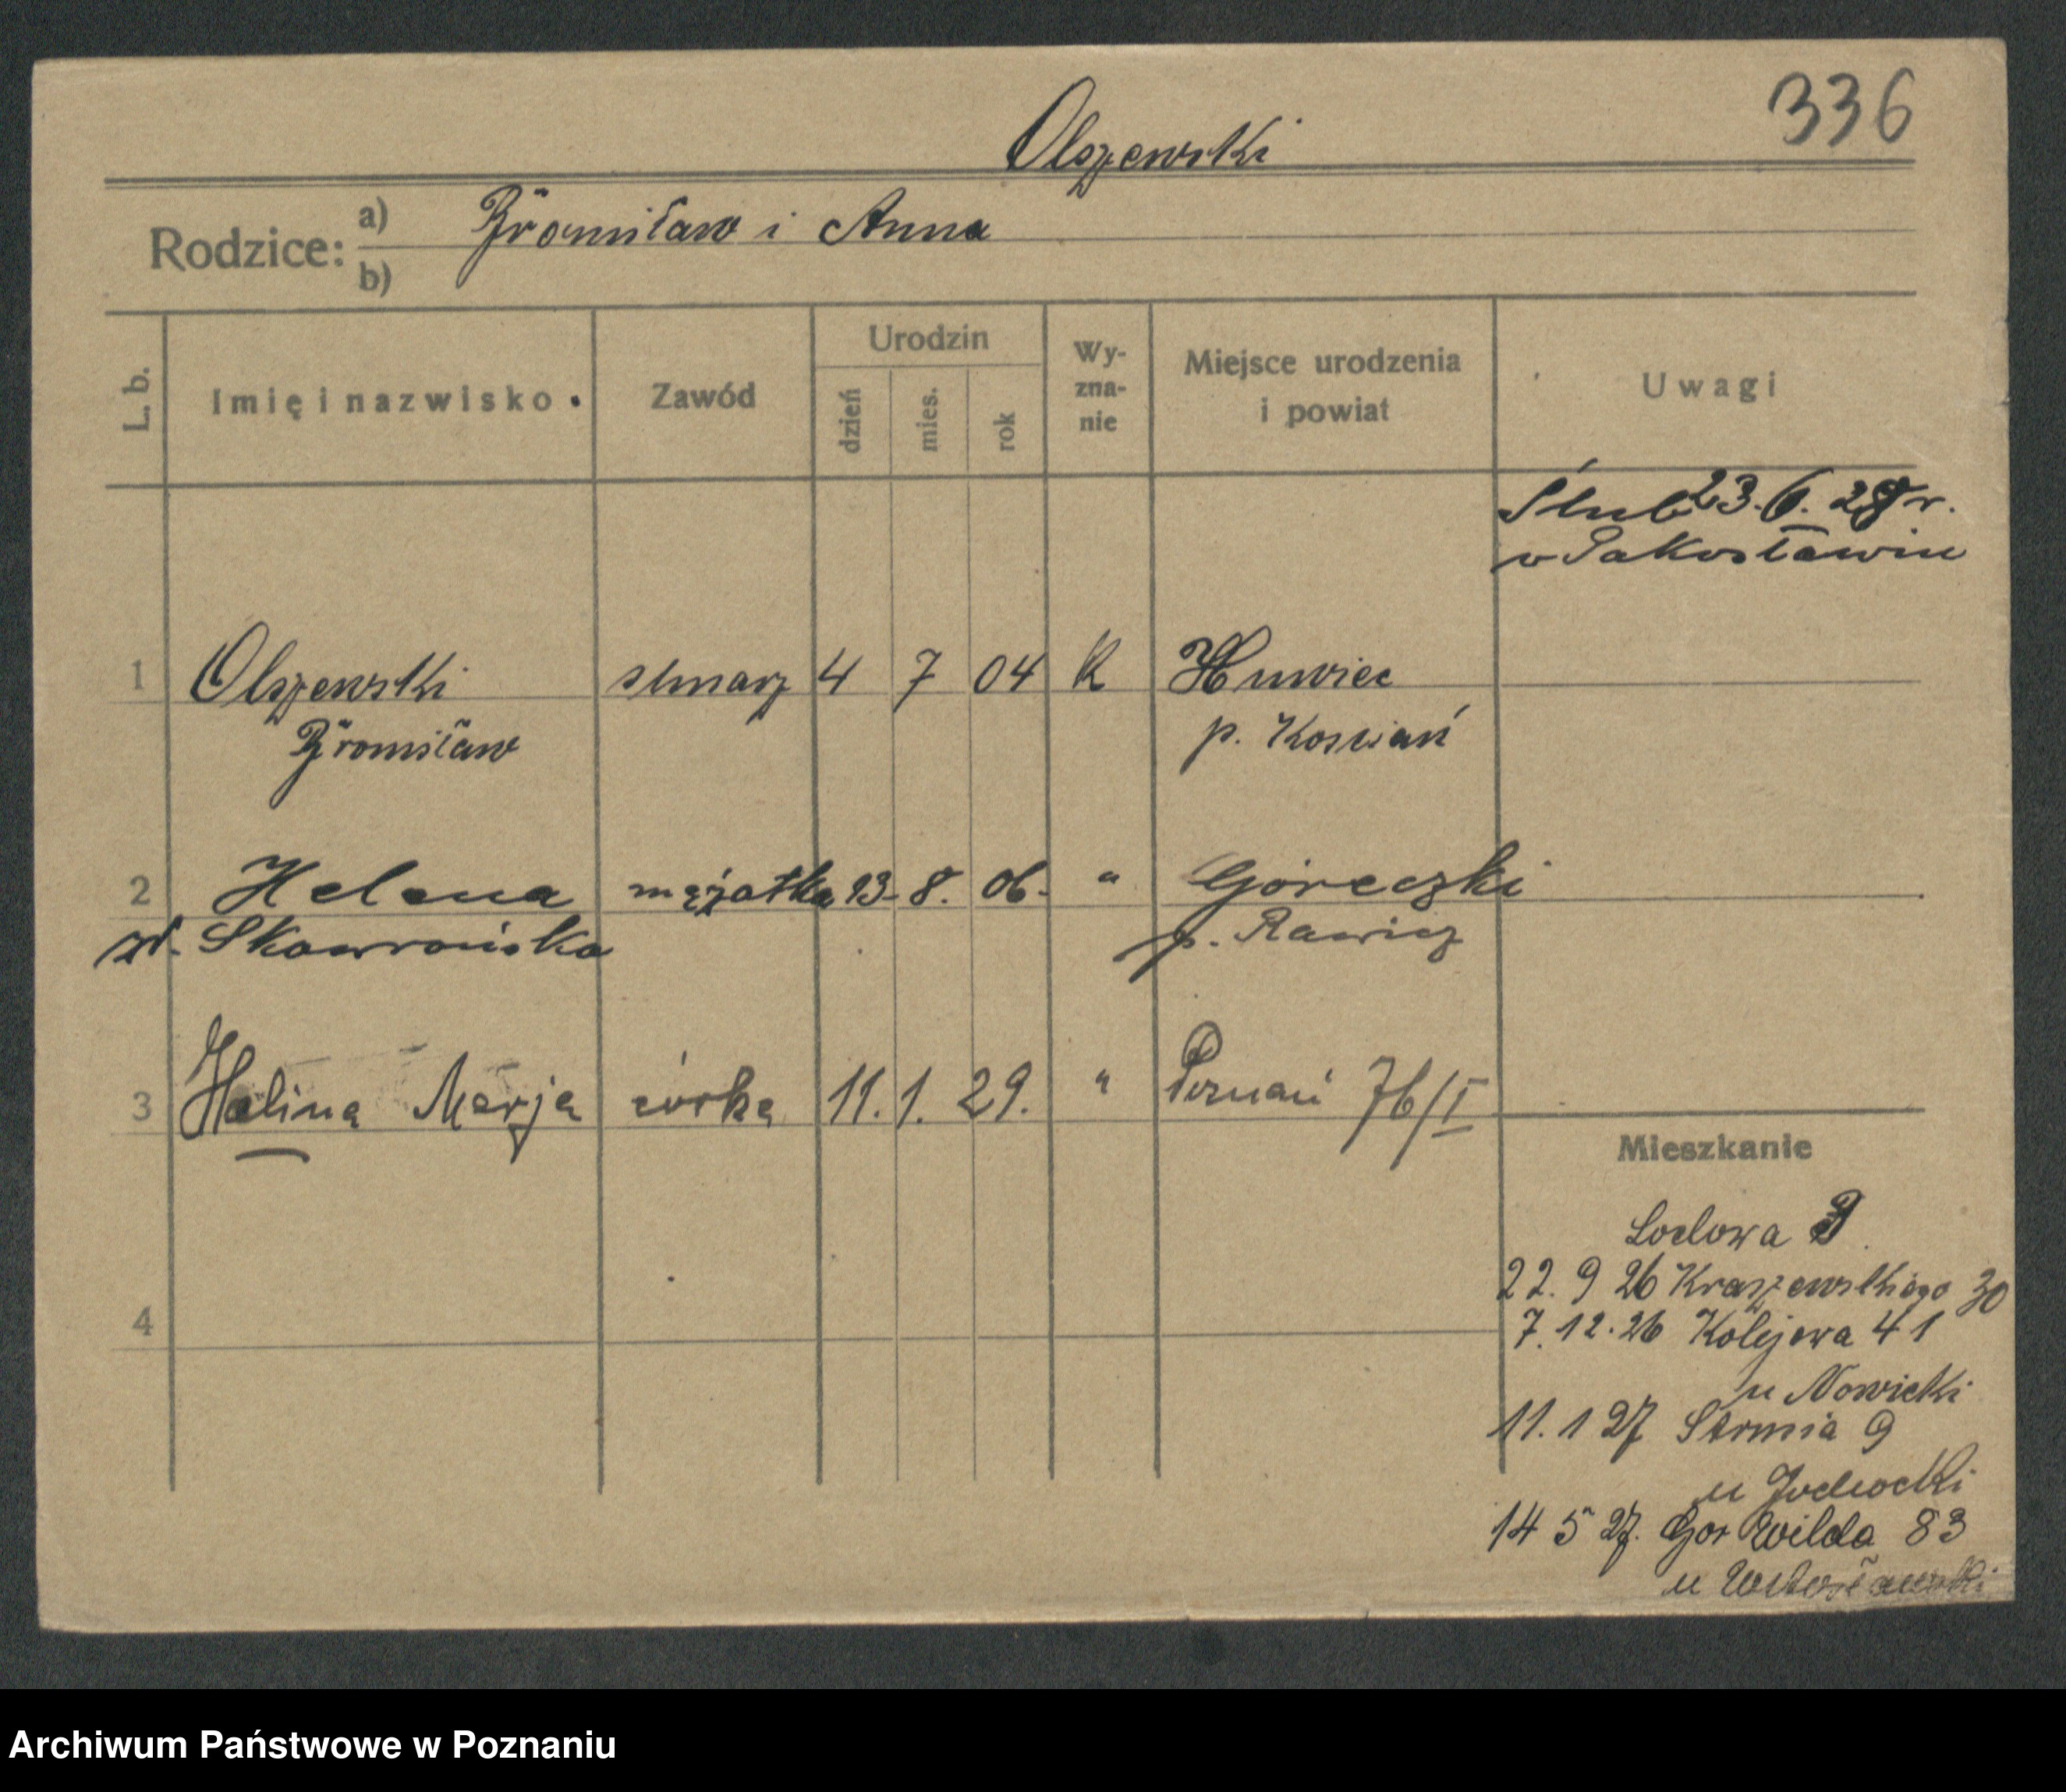 336
Olszewski
Rodzice: a) Bronisław i Anna
b)
L. b.
Imię i nazwisko
Zawód
Urodzin
dzień
mies.
rok
Wy-
zna-
nie
Miejsce urodzenia
i powiat
Uwagi
Ślub 23.6.28r.
w Pakosławiu
1 Olszewski ślusarz 4 7 04 K
Bronisław p. Kościań
2 Helena mężatka 23. 8. 06. " Góreczki
zd. Skowrońska p. Rawicz
3 Halina Marja córka 11. 1. 29. " Poznań 76/I
Mieszkanie
Lodowa
22. 9 26 Kraszewskiego 30
4
7. 12. 26 Kolejowa 41
u Nowicki
11. 1 27 Strmia 9
u
14 5 27. Gor Wilda 83
u
Archiwum Państwowe w Poznaniu